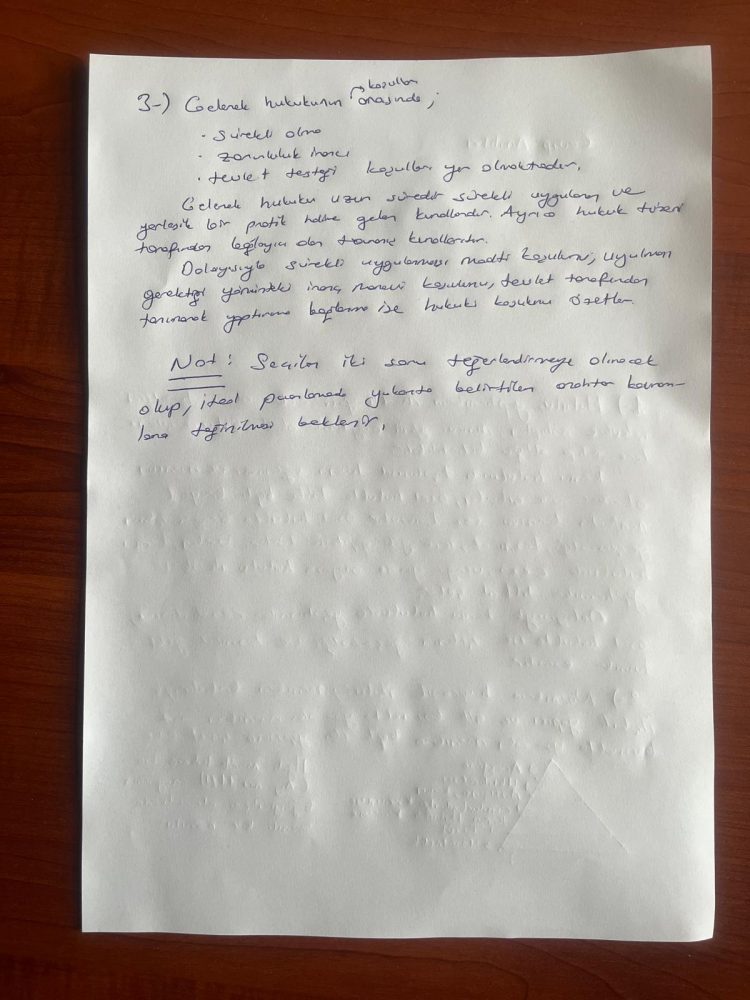 koşulları
3-) Gelenek hukukunun arasında;
· Sürekli olma
· zorunluluk inancı
· devlet desteği koşulları yer almaktadır.
Gelenek hukuku uzun süredir sürekli uygulanan ve
yerleşik bir pratik haline gelen kurallardır. Ayrıca hukuk düzeni
tarafından bağlayıcı olan davranış kurallarıdır.
Dolayısıyla sürekli uygulanması maddi koşulunu, uyulması
gerektiği yönündeki inanç manevi koşulunu, devlet tarafından
tanınarak yaptırıma bağlanma ise hukuki koşulunu özetler.
Not: Seçilen iki soru değerlendirmeye alınacak
olup, ideal puanlamada yukarıda belirtilen anahtar kavram-
lara değinilmesi beklenir.